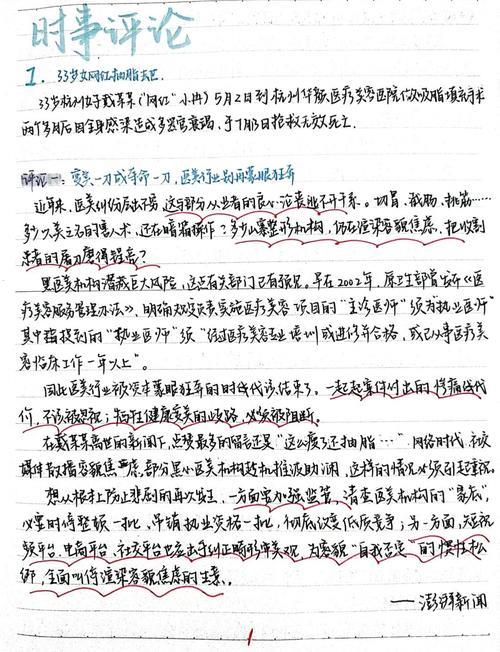 时事评论
1. 33岁女网红抽脂去世.
33岁杭州女子戴某某("网红"小冉)5月2日到杭州华颜医疗美容医院做吸脂填充手术
两个多月后因全身感染造成多器官衰竭,于7月13日抢救无效死亡.
评论一:变美一刀成夺命一刀,医美行业别再蒙眼狂奔
近年来,医美纠纷层出不穷,这与部分从业者的良心沦丧逃不开干系。切胃、缩肠、抽筋……
多少以美立名的骗人术,还在暗箱操作?多少人塞整形机构,仍在渲染容貌焦虑,把收割
患者的屠刀磨得锃亮?
黑医美机构潜藏巨大风险,这点有关部门已有预见。早在2002年,原卫生部曾出《医
疗美容服务管理办法》,明确规定实施医疗美容项目的"主诊医师"须为"执业医师"
其中所提到的"执业医师"须"经过医疗美容专业培训或进修并合格,或已从事医疗美
容临床工作一年以上"。
因此医美行业被资本蒙眼狂奔的时代该结束了,一起起案件付出的惨痛代
价,不该被忽视;牺牲健康变美的歧路,必须被阻断。
在戴某某离世的新闻下,点赞最多的留言还是"这么瘦了还抽脂…"网络时代,社交
媒体散播容貌焦虑,部分黑心医美机构趁机推波助澜,这样的情况必须引起重视。
想从根本上防止悲剧的再次发生,一方面要加强监管,清查医美机构的"毒瘤",
必要时停整顿一批、吊销执业资格一批,彻底改变低质竞争;另一方面,短视
频平台、电商平台、社交平台也应当纠正畸形审美观,为容貌"自我否定"的惯性松
绑,全面叫停渲染容貌焦虑的生意。
——澎湃新闻
1